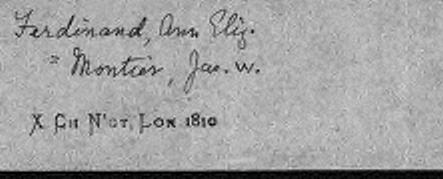 Ferdinand, Ann Eliz.
" Montier, Jas. W.
X CH N'GT, LON 1810